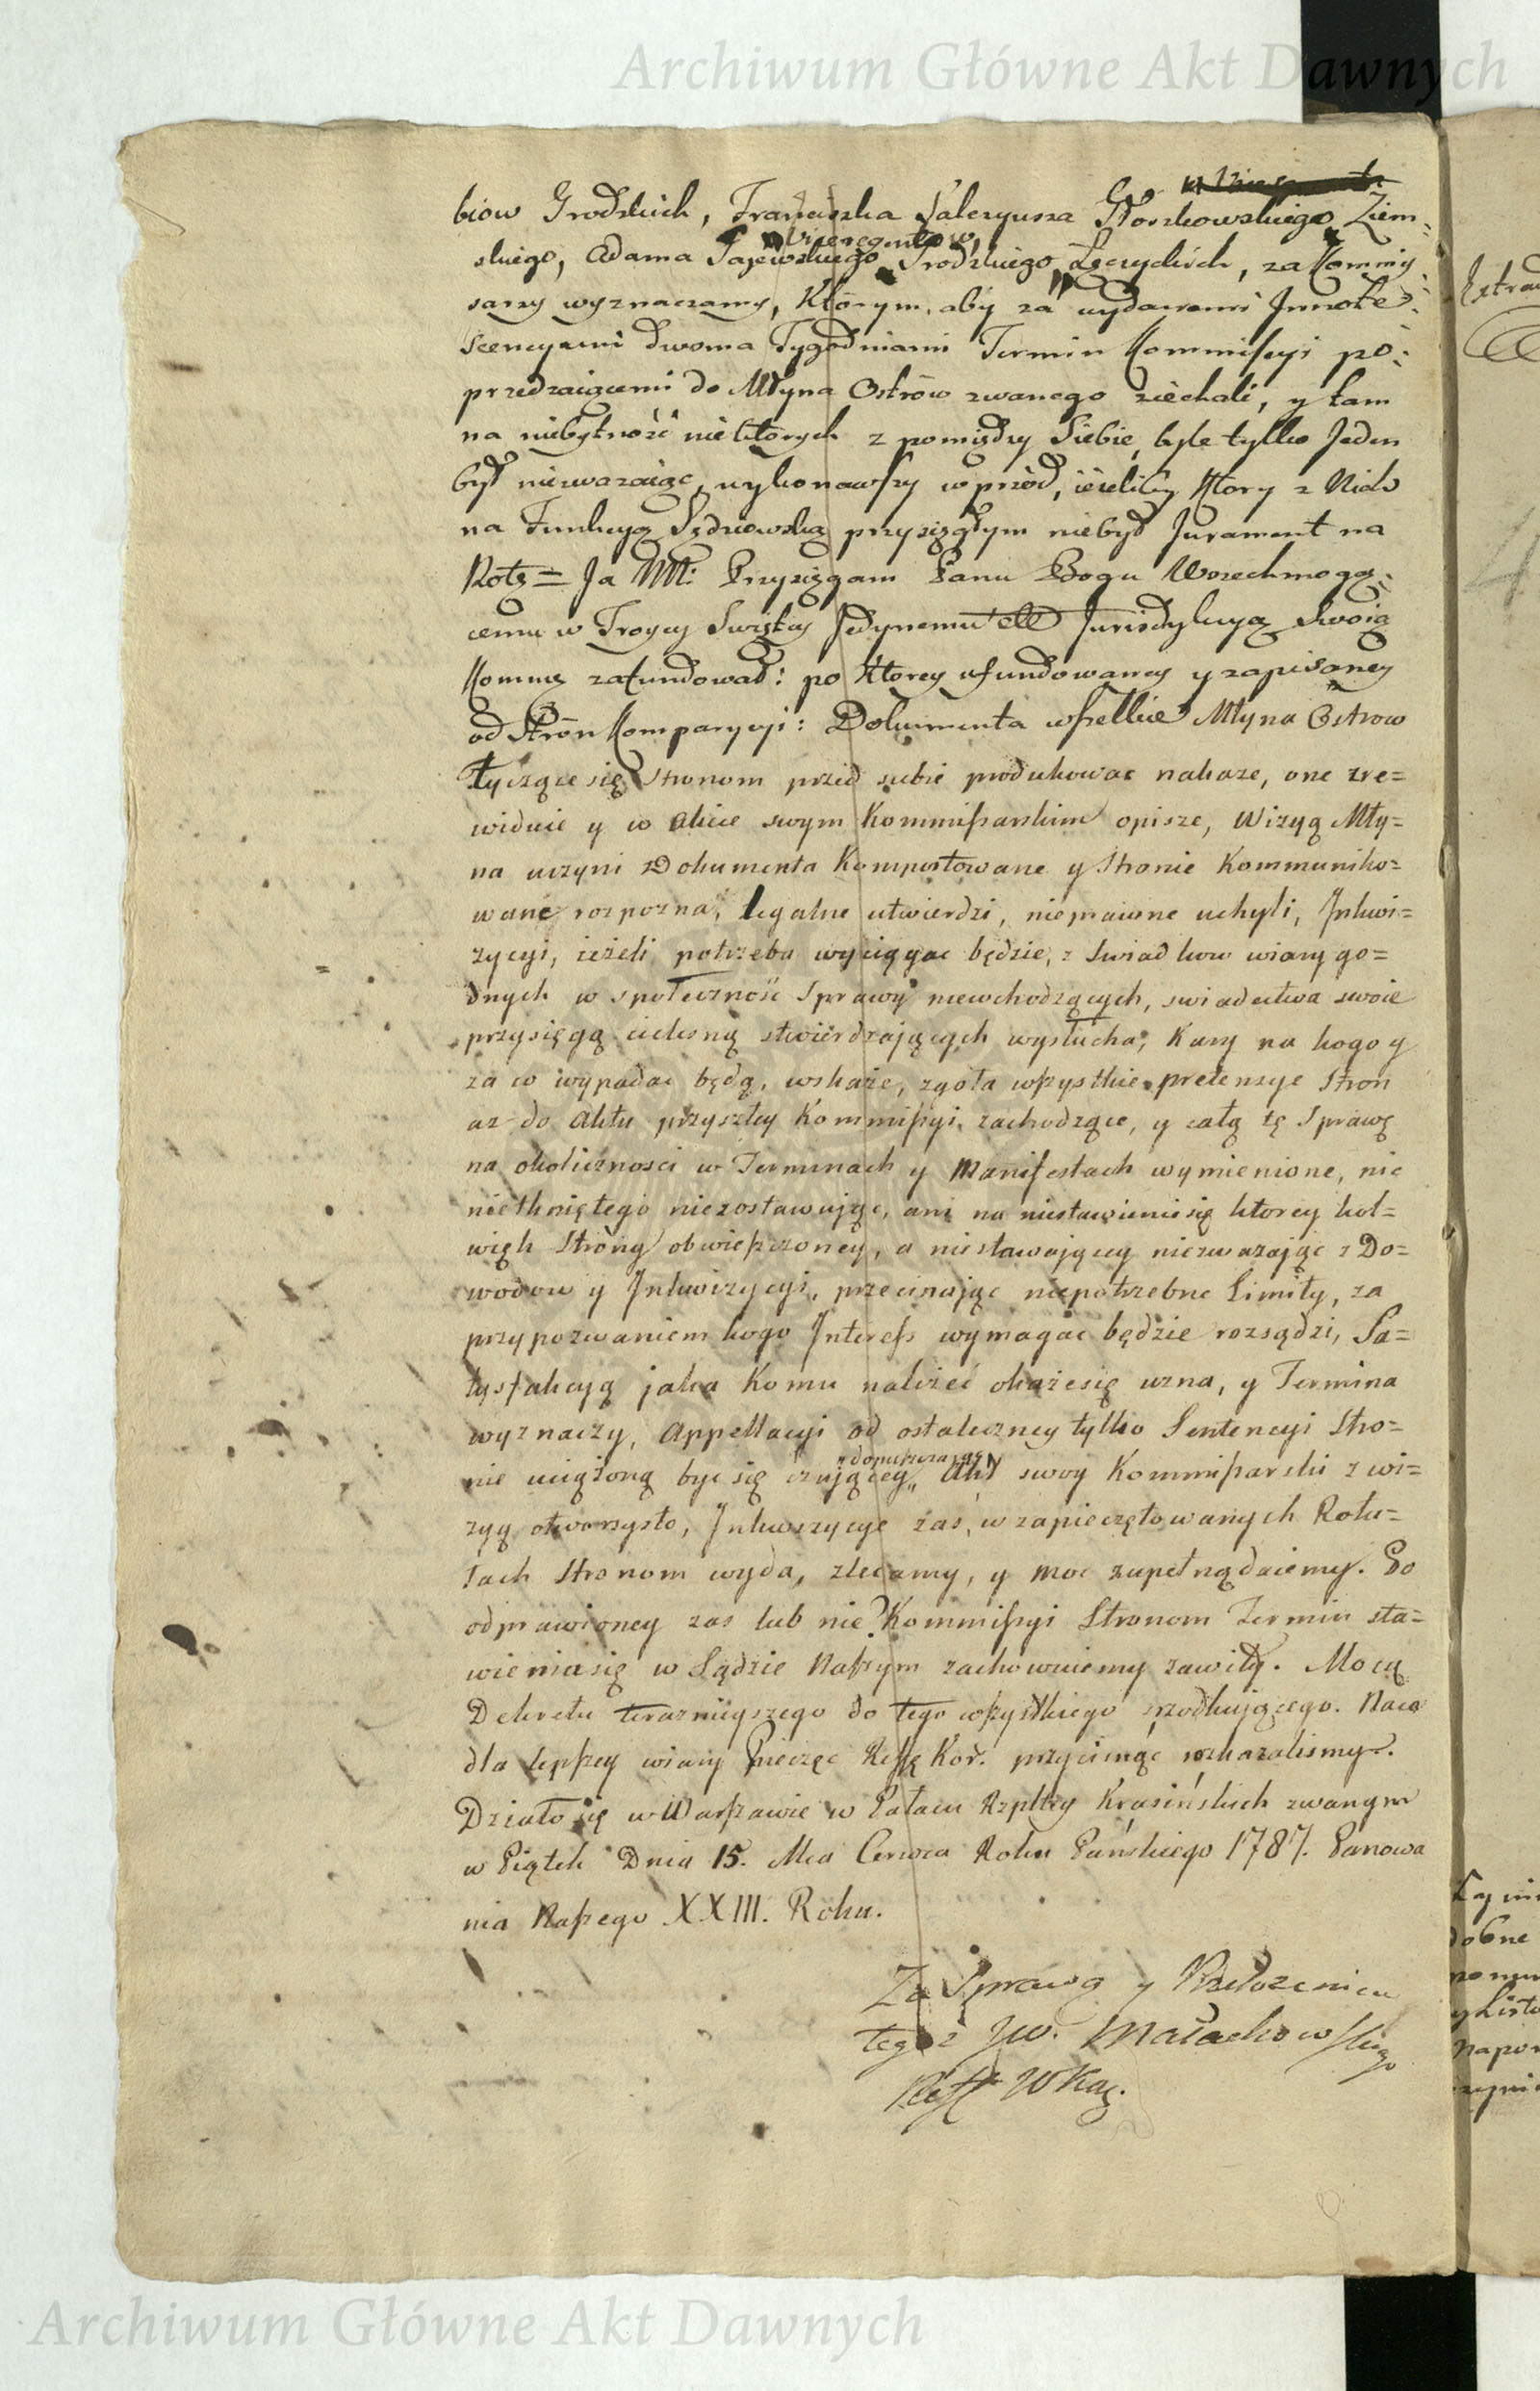 Archiwum Główne Akt Dawnych
biow Grodzkich, Franciszka Waleryusza Gorzkowskiego Ziem-
Viceregentow
skiego, Adama Gajewskiego Grodzkiego Łęczyckich, za Kommis
sarzy wyznaczamy, Którym, aby za wydanemi Innote-
scencyami dwoma Tygodniami Termin Kommissyi po-
przedzaiącemi do Młyna Ostrów zwanego ziechali, y tam
na niebytność niektorych z pomiędzy Siebie, byle tylko Jeden
był niezwazaiąc, wykonawszy wprzód, ieżeliby Ktory z Nich
na Funkcyą Sędziowską przysięgłym niebył Jurament na
Rotę = Ja NN: Przysięgam Panu Bogu Wszechmogą-
cemu w Troycy Swiętey Jedynemu etc Jurisdykcyą Swoią
Kommę zafundował: po Ktorey ufundowaney y zapisaney
od Strón Komparycyi: Dokumenta wszelkie Młyna Ostrow
tyczące się Stronom przed sobie produkować nakaże, one zre=
widuie y w akcie swym Kommissarskim opisze, Wizyą Mły=
na uczyni Dokumenta Komportowane y Stronie Kommuniko=
wane rozpozna, legalne utwierdzi, nieprawne uchyli, Inkwi=
zycyi, ieżeli potrzeba wyciągac będzie, z Swiadkow wiary go=
dnych w społeczność Sprawy niewchodzących, swiadectwa swoie
przysięgą cielesną stwierdzaiących wysłucha, Kary na kogo y
za co wypadac będą, wskaże, zgoła wszystkie pretensye Stron
az do aktu przyszłey Kommissyi zachodzące, y całą tę Sprawę
na okoliczności w Terminach y Manifestach wymienione, nic
nietkniętego niezostawując, ani na niestawienie się ktorey kol=
wiek Strony obwieszczoney, a niestawaiący niezwazając z Do=
wodow y Inkwizycyi, przecinając niepotrzebne Limity, za
przypozwaniem kogo Interess wymagac będzie rozsądzi, Sa=
tysfakcyą jaka Komu należeć okaże się uzna, y Termina
wyznaczy, Appellacyi od ostateczney tylko Sentencyi Stro=
dopuszczając
nie uciążoną być się czującey Akt swoy Kommissarski z wi=
zyą otworzysto, Inkwizycye zaś, w zapieczętowanych Rotu=
łach Stronom wyda, zlecamy, y moc zupełną daiemy. Po
odprawioney zas lub nie Kommissyi Stronom Termin sta=
wienia się w Sądzie Naszym zachowuiemy zawity. Mocą
Dekretu teraznieyszego do tego wszystkiego srzodkującego. Na co
dla lepszey wiary Pieczęc Kor. przycisnąc rozkazalismy.
Działo się w Warszawie w Pałacu Rzpltey Krasińskich zwanym
w Piątek Dnia 15. Mca Czerwca Roku Pańskiego 1787. Panowa
nia Naszego XXIII. Roku.
Za Sprawą y Przełożeniem
tegoż JW. Małachowskiego
WKaz.
Archiwum Główne Akt Dawnych